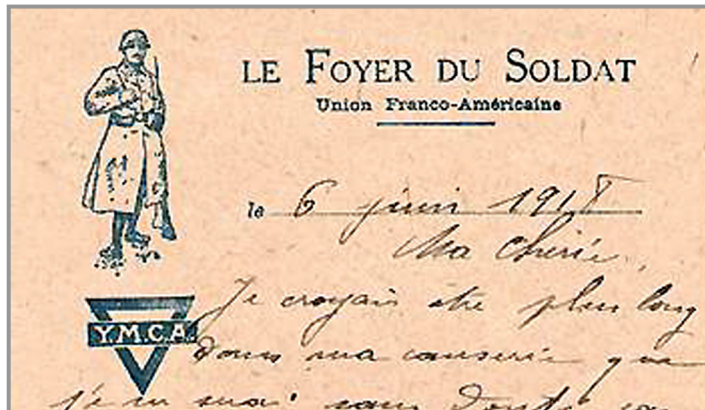 LE FOYER DU SOLDAT
Union Franco-Américaine
le 6 juin 1918
Ma Chérie,
Je croyais être plus long
Y.M.C.A.
dans ma causerie que
je sans doute